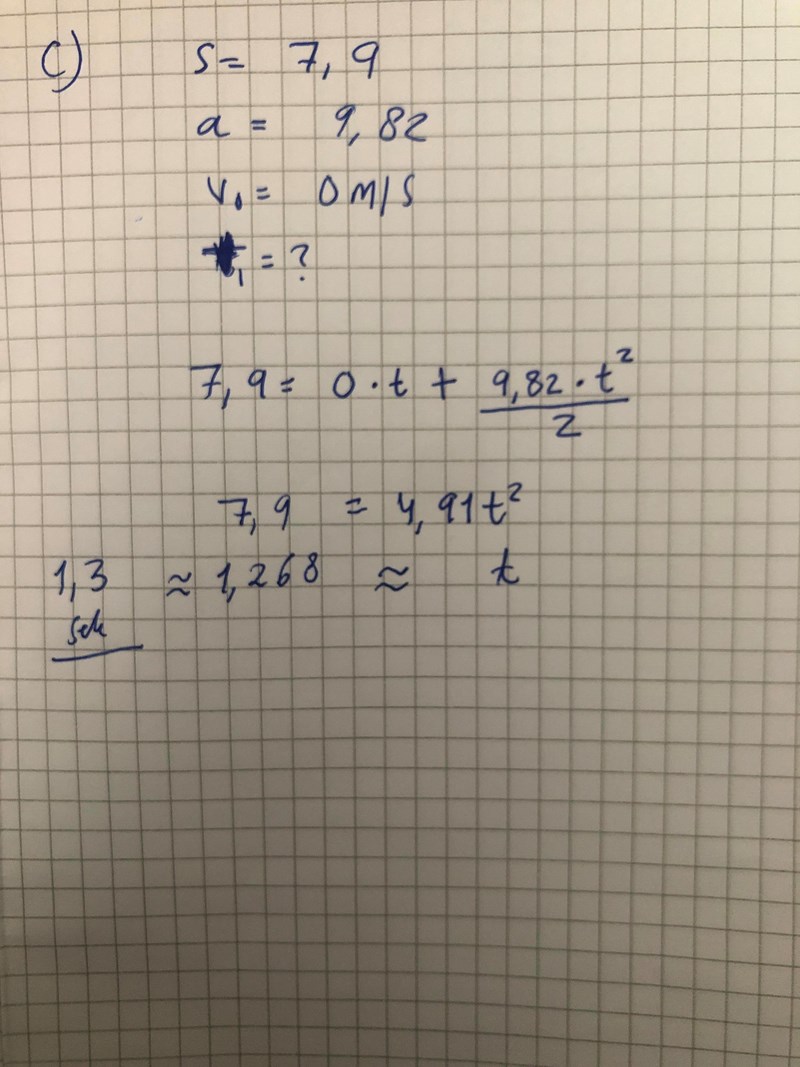 c) s= 7,9
a = 9,82
v₀= 0 m/s
t₁ = ?
7,9= 0 · t + 9,82 · t² / 2
7,9 = 4,91t²
1,3 ≈ 1,268 ≈ t
sek